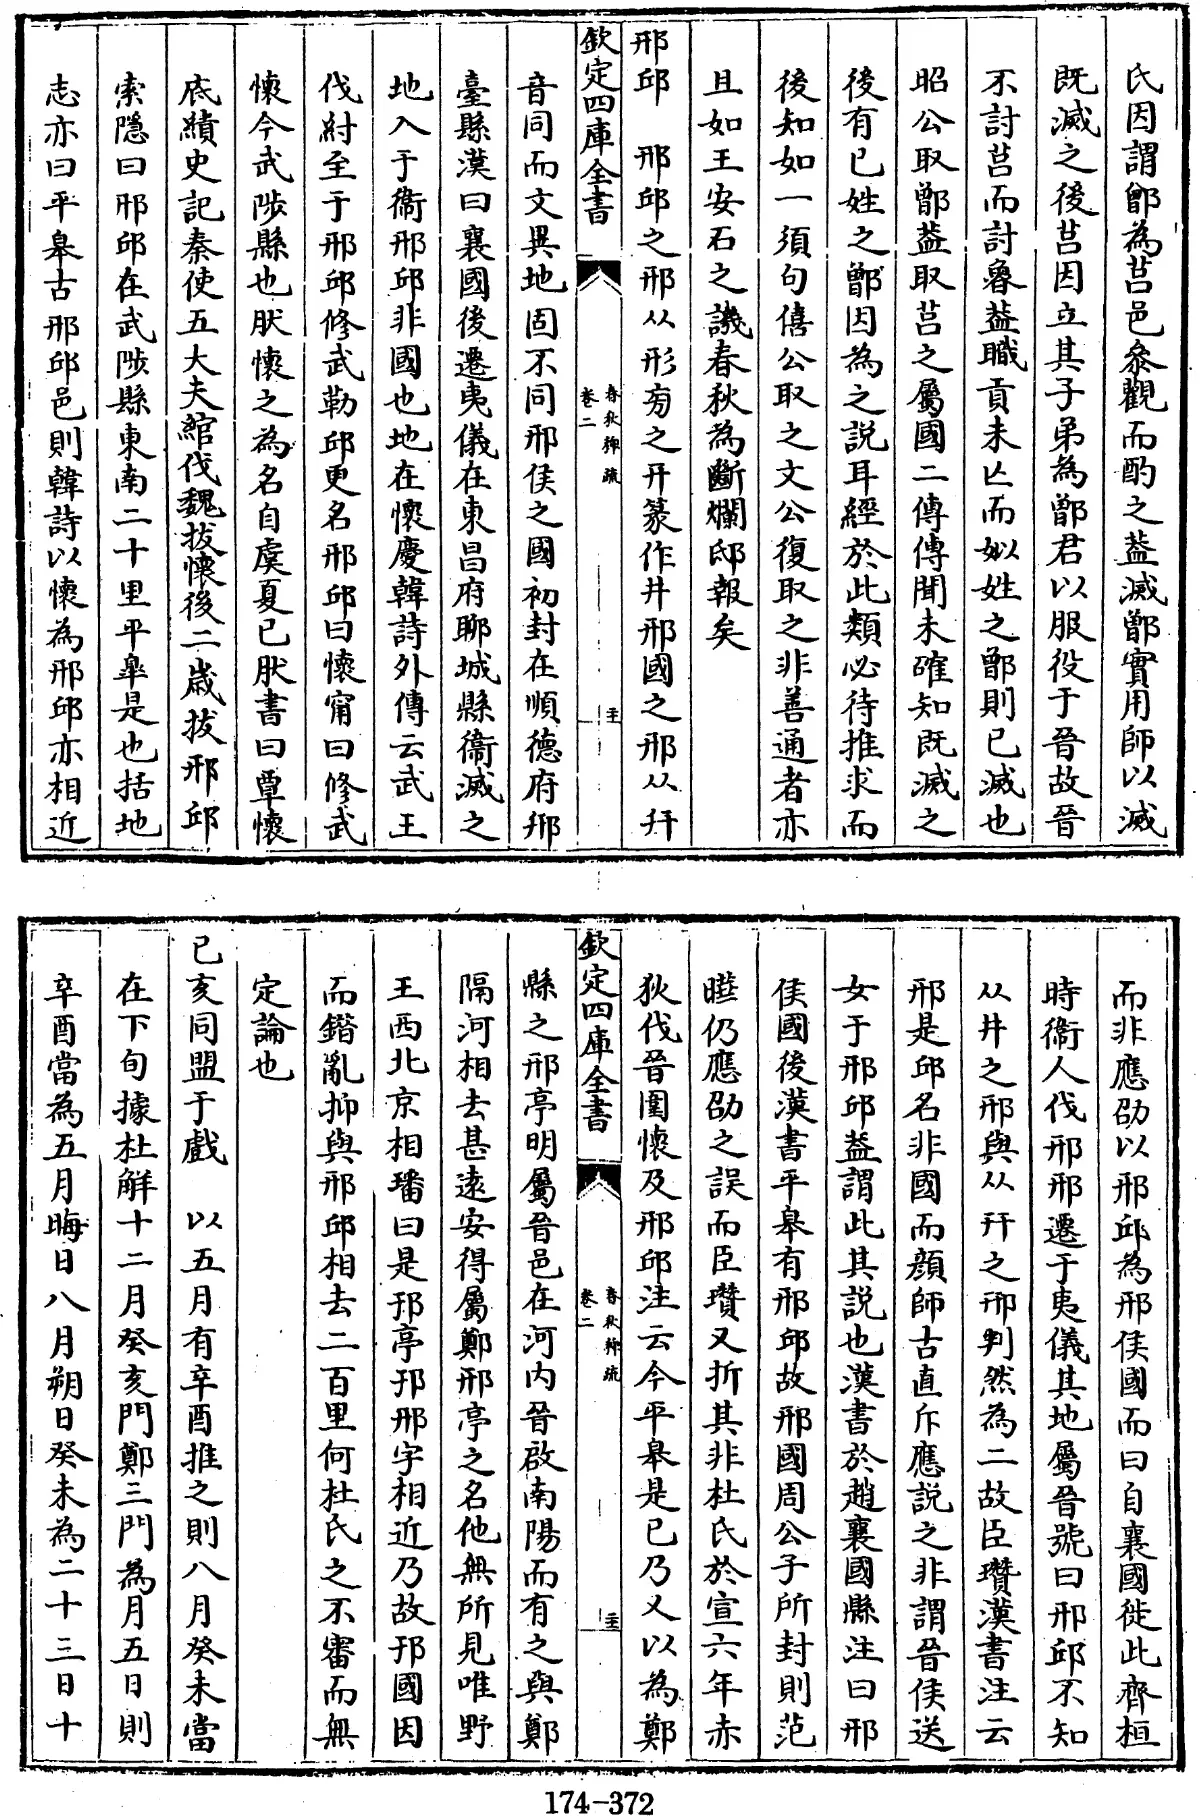 氏因謂鄫為莒邑叅觀而酌之葢滅鄫實用師以滅
既滅之後莒因立其子弟為鄫君以服役于晉故晉
不討莒而討魯葢職貢未亾而姒姓之鄫則已滅也
昭公取鄫葢取莒之屬國二傳傳聞未確知既滅之
後有已姓之鄫因為之説耳經於此類必待推求而
後知如一須句僖公取之文公復取之非善通者亦
且如王安石之譏春秋為斷爛邸報矣
邢邱 邢邱之邢从形旁之幵篆作井邢國之邢从幵
欽定四庫全書
春秋稗疏
卷二
音同而文異地固不同邢侯之國初封在順德府邢
臺縣漢曰襄國後遷夷儀在東昌府聊城縣衞滅之
地入于衞邢邱非國也地在懷慶韓詩外傳云武王
伐紂至于邢邱修武勒邱更名邢邱曰懷甯曰修武
懷今武陟縣也肰懷之為名自虞夏已肰書曰覃懷
底績史記秦使五大夫綰伐魏拔懷後二歲拔邢邱
索隱曰邢邱在武陟縣東南二十里平皋是也括地
志亦曰平皋古邢邱邑則韓詩以懷為邢邱亦相近
而非應劭以邢邱為邢侯國而曰自襄國徙此齊桓
時衞人伐邢邢遷于夷儀其地屬晉號曰邢邱不知
从井之邢與从幵之邢判然為二故臣瓚漢書注云
邢是邱名非國而顔師古直斥應説之非謂晉侯送
女于邢邱葢謂此其説也漢書於趙襄國縣注曰邢
侯國後漢書平皋有邢邱故邢國周公子所封則范
曄仍應劭之誤而臣瓚又折其非杜氏於宣六年赤
狄伐晉圍懷及邢邱注云今平皋是已乃又以為鄭
欽定四庫全書
春秋稗疏
卷二
縣之邢亭明屬晉邑在河内晉啟南陽而有之與鄭
隔河相去甚逺安得屬鄭邢亭之名他無所見唯野
王西北京相璠曰是邘亭邘邢字相近乃故邘國因
而錯亂抑與邢邱相去二百里何杜氏之不審而無
定論也
已亥同盟于戲 以五月有辛酉推之則八月癸未當
在下旬據杜解十二月癸亥門鄭三門為月五日則
辛酉當為五月晦日八月朔日癸未為二十三日十
174-372